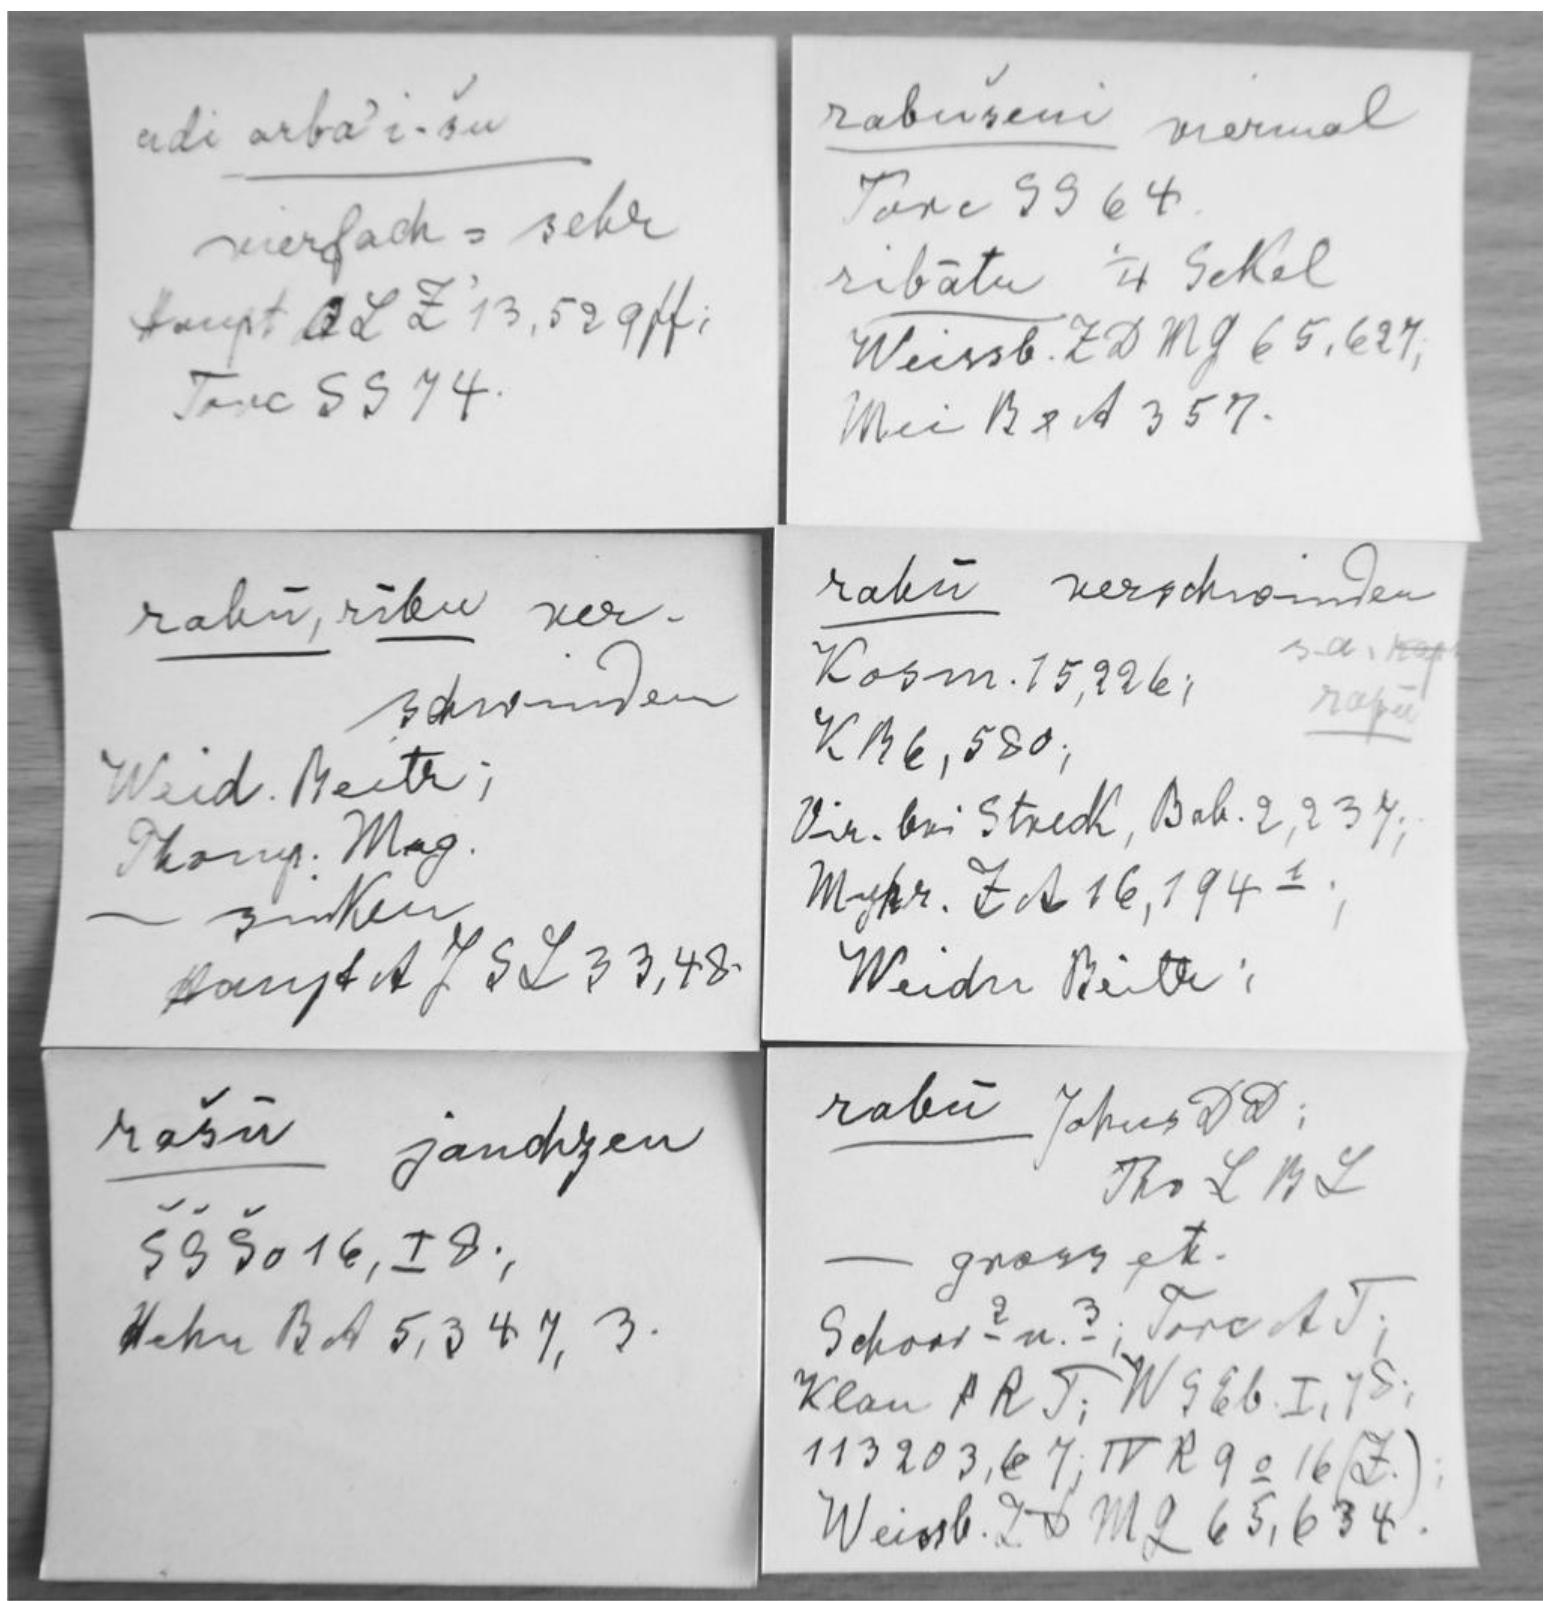 adi arba'i-šu
vierfach = sehr
Haupt OLZ '13, 529ff;
Torc SS 74.
rabušeni viermal
Torc SS 64.
ribātu ¼ Sekel
Weissb. ZDMG 65, 627;
Mei B&A 357.
rabū, rību ver-
schwinden
Weid. Beitr;
Thomp. Mag.
— sinken
Haupt AJSL 33, 48.
rabū verschwinden
s.a.
rapū
Kosm. 15, 226;
KB6, 580;
Vir. bei Streck, Bab. 2, 237;
Myhr. ZA 16, 194 1;
Weidn Beitr;
rāšū jauchzen
ŠŠŠo 16, I 8;
Hehn BA 5, 347, 3.
rabū Johns DD;
Tho LBL
— gross etc.
Schorr 2 u. 3; Torc AT;
Klau PRT; WGEb. I, 78;
113203, 67; IV R 9 o 16 (Z.);
Weissb. ZDMG 65, 634.